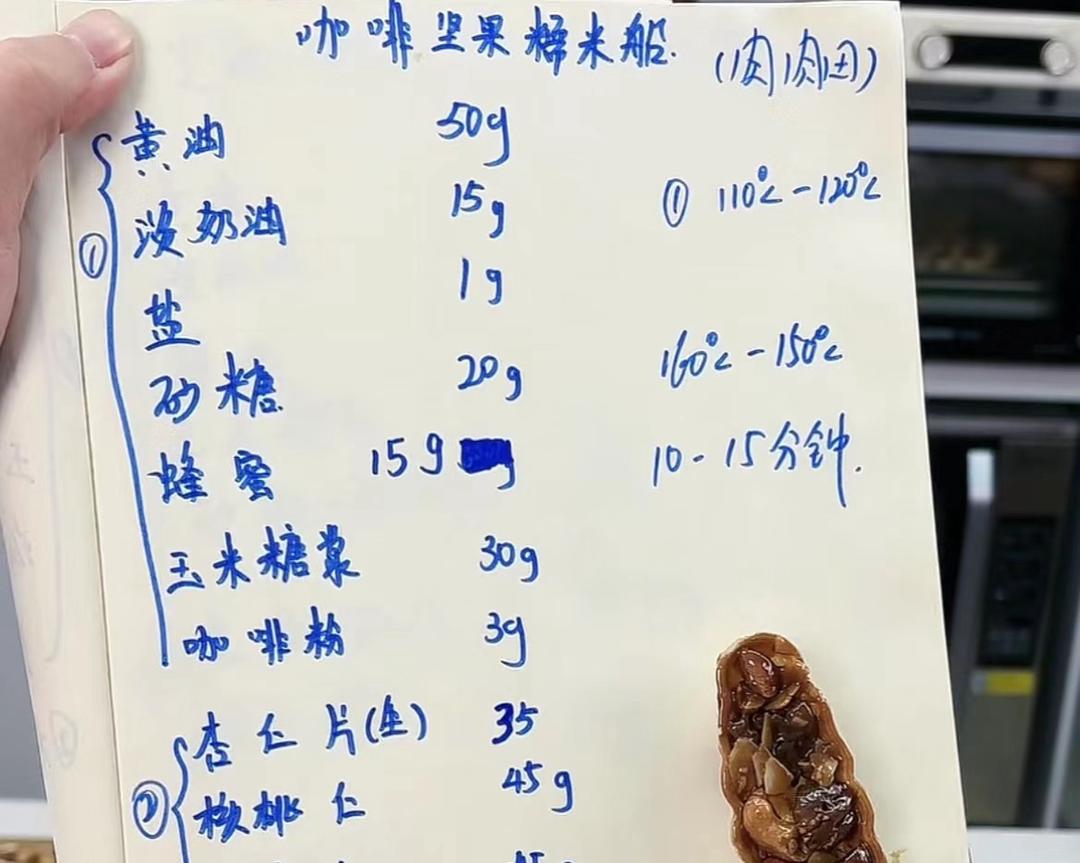 咖啡坚果糯米船.
(肉肉田)
① 黄油 50g
淡奶油 15g
盐 1g
砂糖 20g
蜂蜜 15g
玉米糖浆 30g
咖啡粉 3g
① 110℃-120℃
160℃-150℃
10-15分钟.
② 杏仁片(生) 35
核桃仁 45g